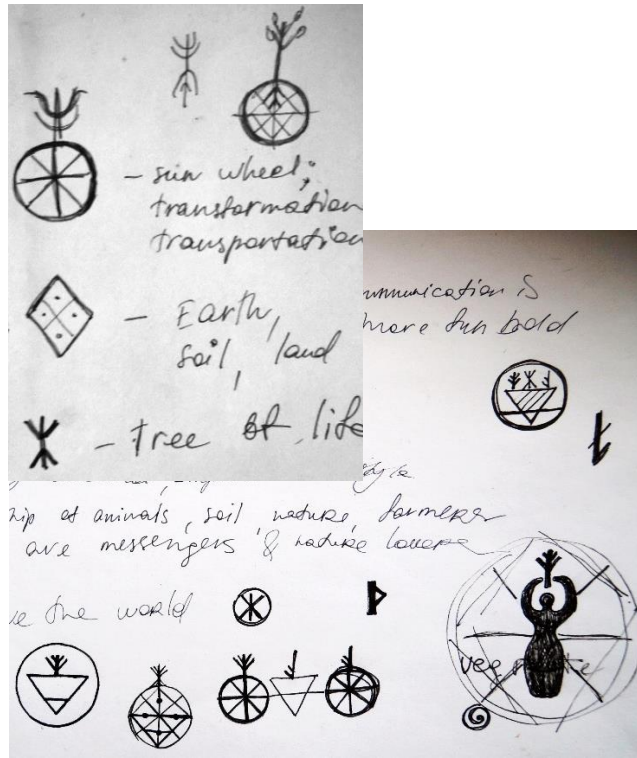 - sun wheel;
transformation
transportation
- Earth,
soil, land
- tree of life
communication is
more fun bold
style
hip of animals, soil, nature, farmers
are messengers & nature lovers
the world